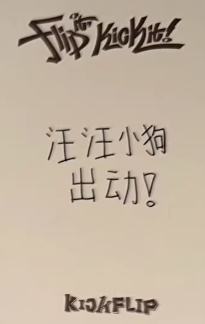 Flip it, Kick it!
汪汪小狗
出动!
KICKFLIP